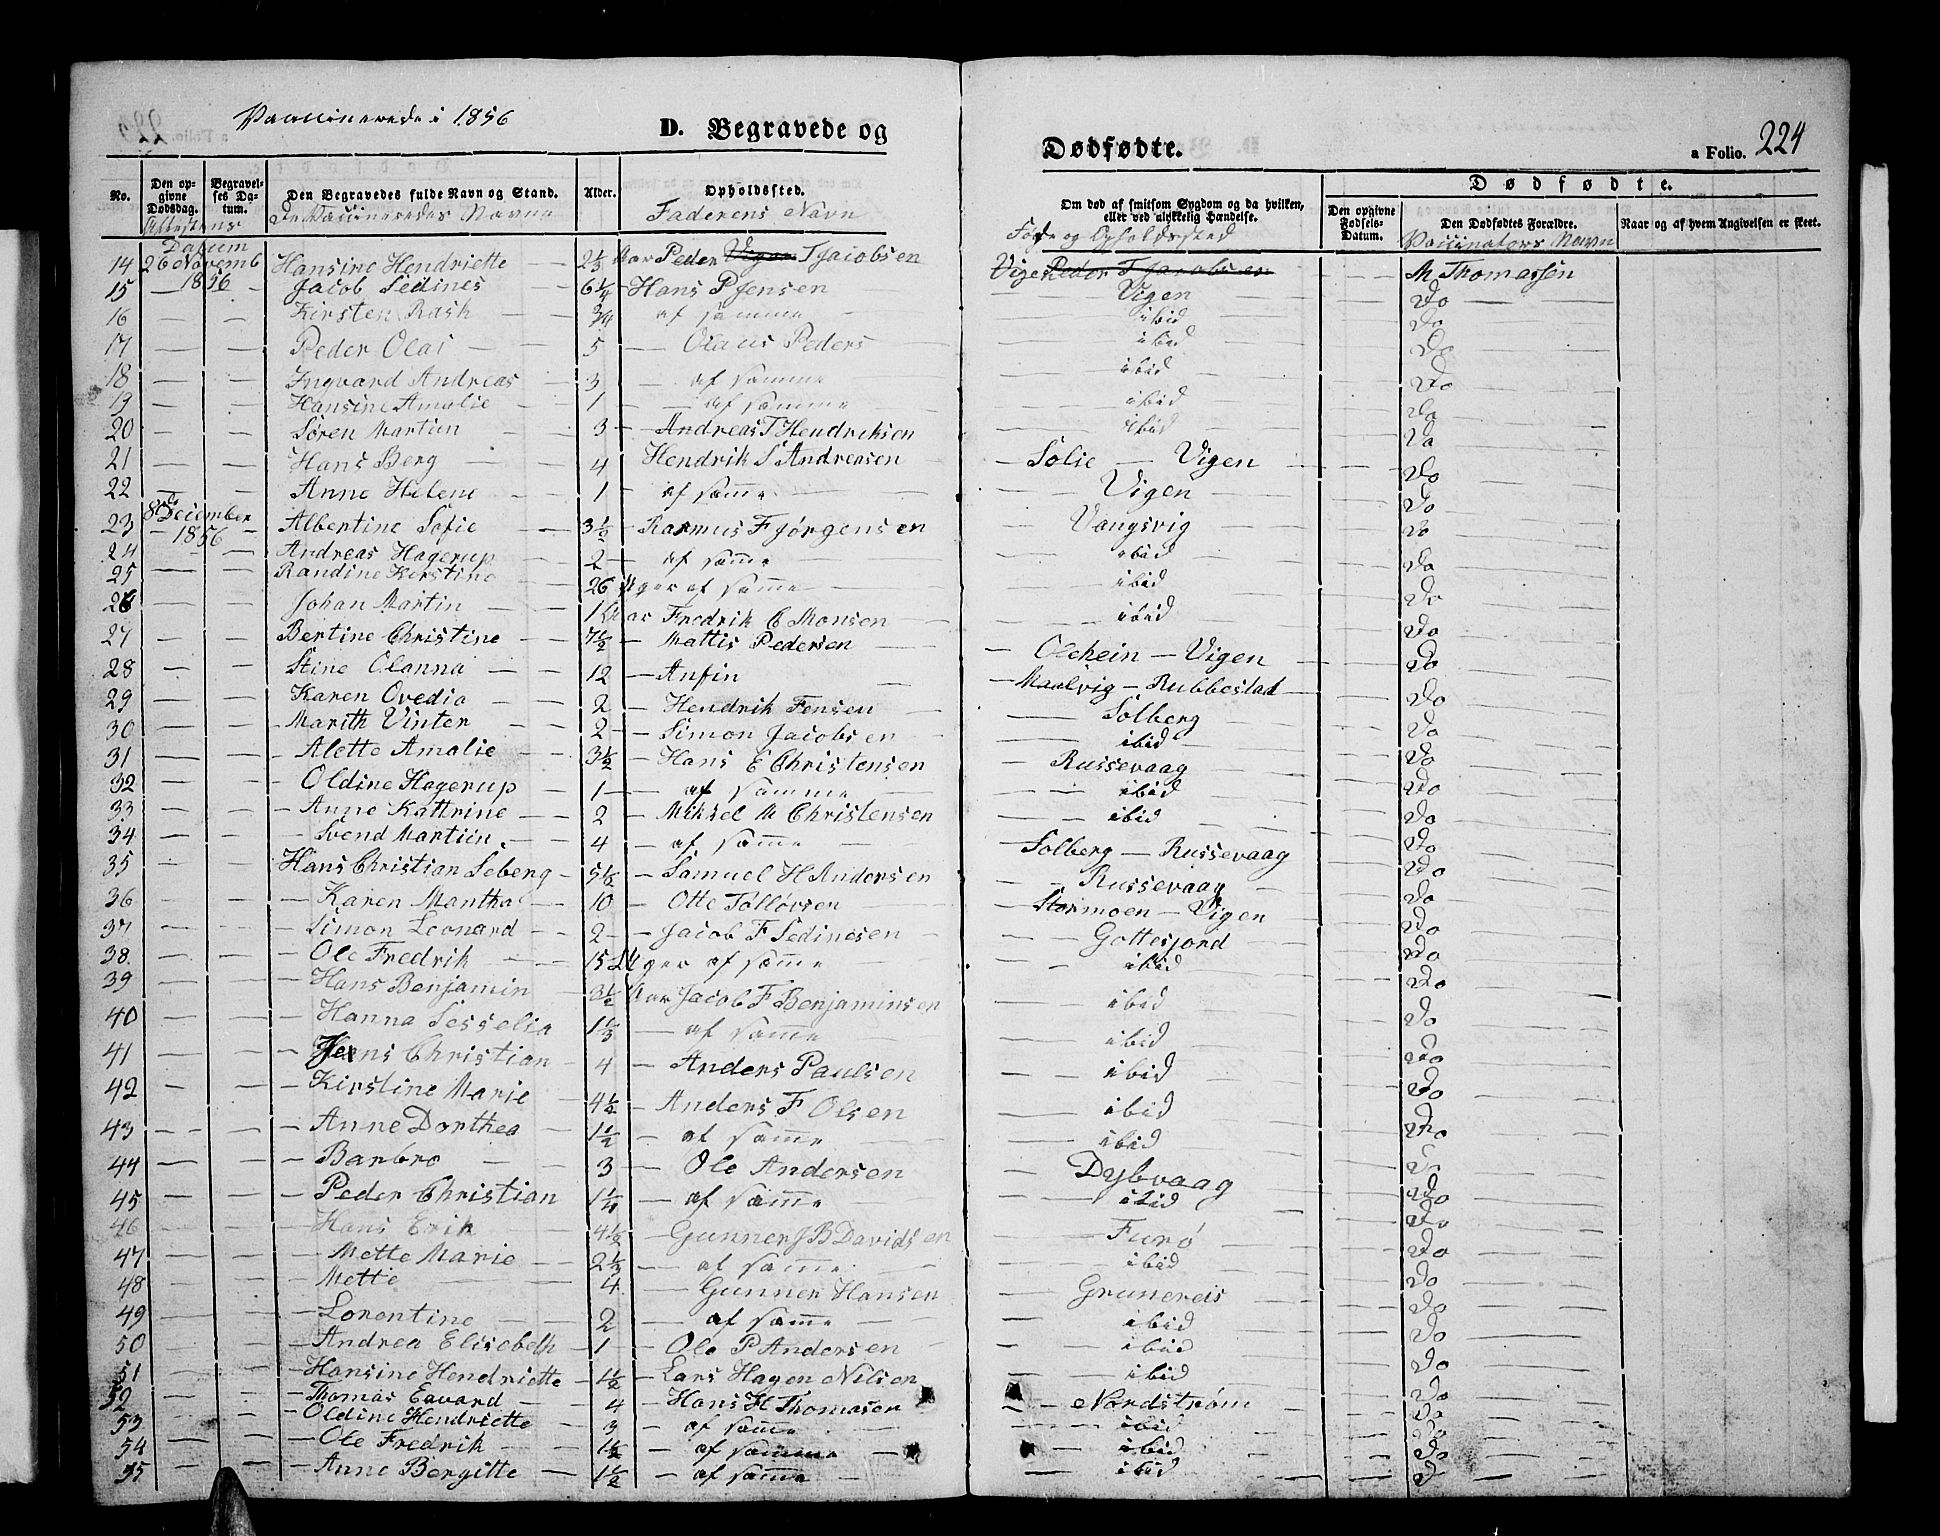 Vaccinerede i 1856
D. Begravede og
Dødfødte.
a Folio. 224
No.
Den opgivne Dødsdag.
Begravelses Datum.
Den Begravedes fulde Navn og Stand.
Alder.
Opholdssted.
Om død af smitsom Sygdom og da hvilken, eller ved ulykkelig Hændelse.
Dødfødte.
Den opgivne Fødsels-Datum.
Den Dødfødtes Forældre.
Naar og af hvem Angivelsen er skeet.
Attestens Datum
De Vaccineredes Navne
Faderens Navn
Føde og Opholdssted
Vaccinators Navn
14 26 Novemb 1856 Hansine Hendriette 2 1/3 Aar Peder Vigen T Jacobsen Vigen Peder T Jacobsen M Thomassen
15 — — Jacob Sedines — 6 1/4 — Hans P Jensen — Vigen — Do
16 — — Kirsten Rash — 3/4 af samme — ibid — Do
17 — — Peder Olai — 5 — Olaus Peders — ibid — Do
18 — — Ingvard Andreas 3 — af samme — ibid — Do
19 — — Hansine Amalie — 1 — af samme — ibid — Do
20 — — Søren Martin — 3 — Andreas T Hendriksen — ibid — Do
21 — — Hans Berg — 4 Hendrik S Andreasen — Solie — Vigen — Do
22 — — Anne Helene — 1 — af samme — Vigen — Do
23 8de December 1856 Albertine Sofie — 3 1/2 — Rasmus F Jørgensen — Vangsvig — Do
24 — — Andreas Hagerup — 2 — af samme — ibid — Do
25 — — Randine Kirstine 26 Uger af samme — ibid — Do
26 — — Johan Martin — 1 Aar Fredrik C Monsen — ibid — Do
27 — — Bertine Christine — 7 1/2 — Mattis Pedersen — Olehein — Vigen — Do
28 — — Stine Olanna — 12 — Anfin — Maalvig — Rubbestad — Do
29 — — Karen Ovedia — 2 — Hendrik Jensen — Solberg — Do
30 — — Marith Vinter — 2 — Simon Jacobsen — ibid — Do
31 — — Alette Amalie — 3 1/2 — Hans E Christensen — Russevaag — Do
32 — — Oldine Hagerup — 1 — af samme — ibid — Do
33 — — Anne Kathrine — 2 — Mikkel M Christensen — ibid — Do
34 — — Svend Martiin — 4 — af samme — Solberg — Russevaag — Do
35 — — Hans Christian Seberg — 5 1/2 — Samuel H Andersen — Russevaag — Do
36 — — Karen Mantha — 10 — Otte Tollovsen — Stormoen — Vigen — Do
37 — — Simon Leonard — 2 — Jacob F Sedinesen — Gottesjord — Do
38 — — Ole Fredrik — 15 Uger af samme — ibid — Do
39 — — Hans Benjamin — 3 1/2 Aar Jacob F Benjaminsen — ibid — Do
40 — — Hanna Sesselia 1 1/3 — af samme — ibid — Do
41 — — Jens Christian — 4 — Anders Paulsen — ibid — Do
42 — — Kirstine Marie — 4 1/2 — Anders F Olsen — ibid — Do
43 — — Anne Dorthea — 1 1/2 — af samme — ibid — Do
44 — — Barbro — 3 — Ole Andersen — Dybvaag — Do
45 — — Peder Christian — 1 1/4 — af samme — ibid — Do
46 — — Hans Erik — 4 1/2 — Gunner J B Davidsen — Furø — Do
47 — — Mette Marie — 2 1/3 — af samme — ibid — Do
48 — — Mette — 4 — Gunner Hansen — Grunereis — Do
49 — — Lorentine — 2 — af samme — ibid — Do
50 — — Andrea Elisabeth — 1 — Ole P Andersen — ibid — Do
51 — — Hansine Hendriette — 1 1/2 — Lars Hagen Nilsen — ibid — Do
52 — — Thomas Edvard — 4 — Hans H Thomasen — Nordstrøm — Do
53 — — Oldine Hendriette — 3 — af samme — ibid — Do
54 — — Ole Fredrik — 1 1/2 — af samme — ibid — Do
55 — — Anne Bergitte — 1 1/2 — af samme — ibid — Do